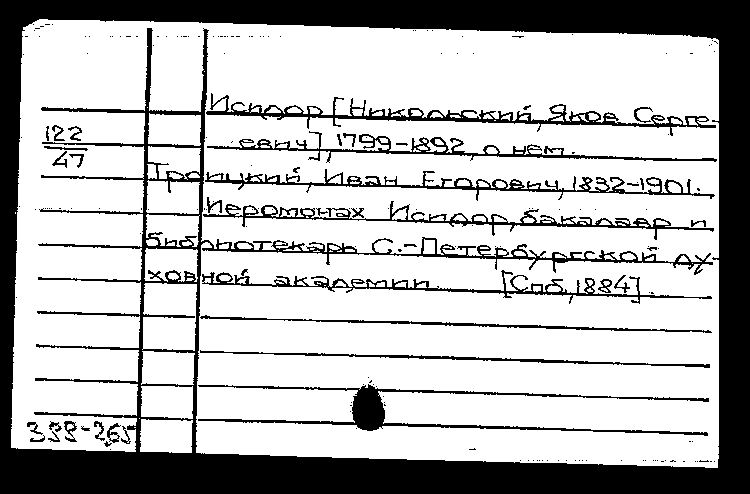 Исидор [Никольский, Яков Серге-
евич], 1799-1892, о нем.
122
47
Троицкий, Иван Егорович, 1832-1901.
Иеромонах Исидор, бакалавр и
библиотекарь С.-Петербургской ду-
ховной академии. [Спб, 1884].
399-265